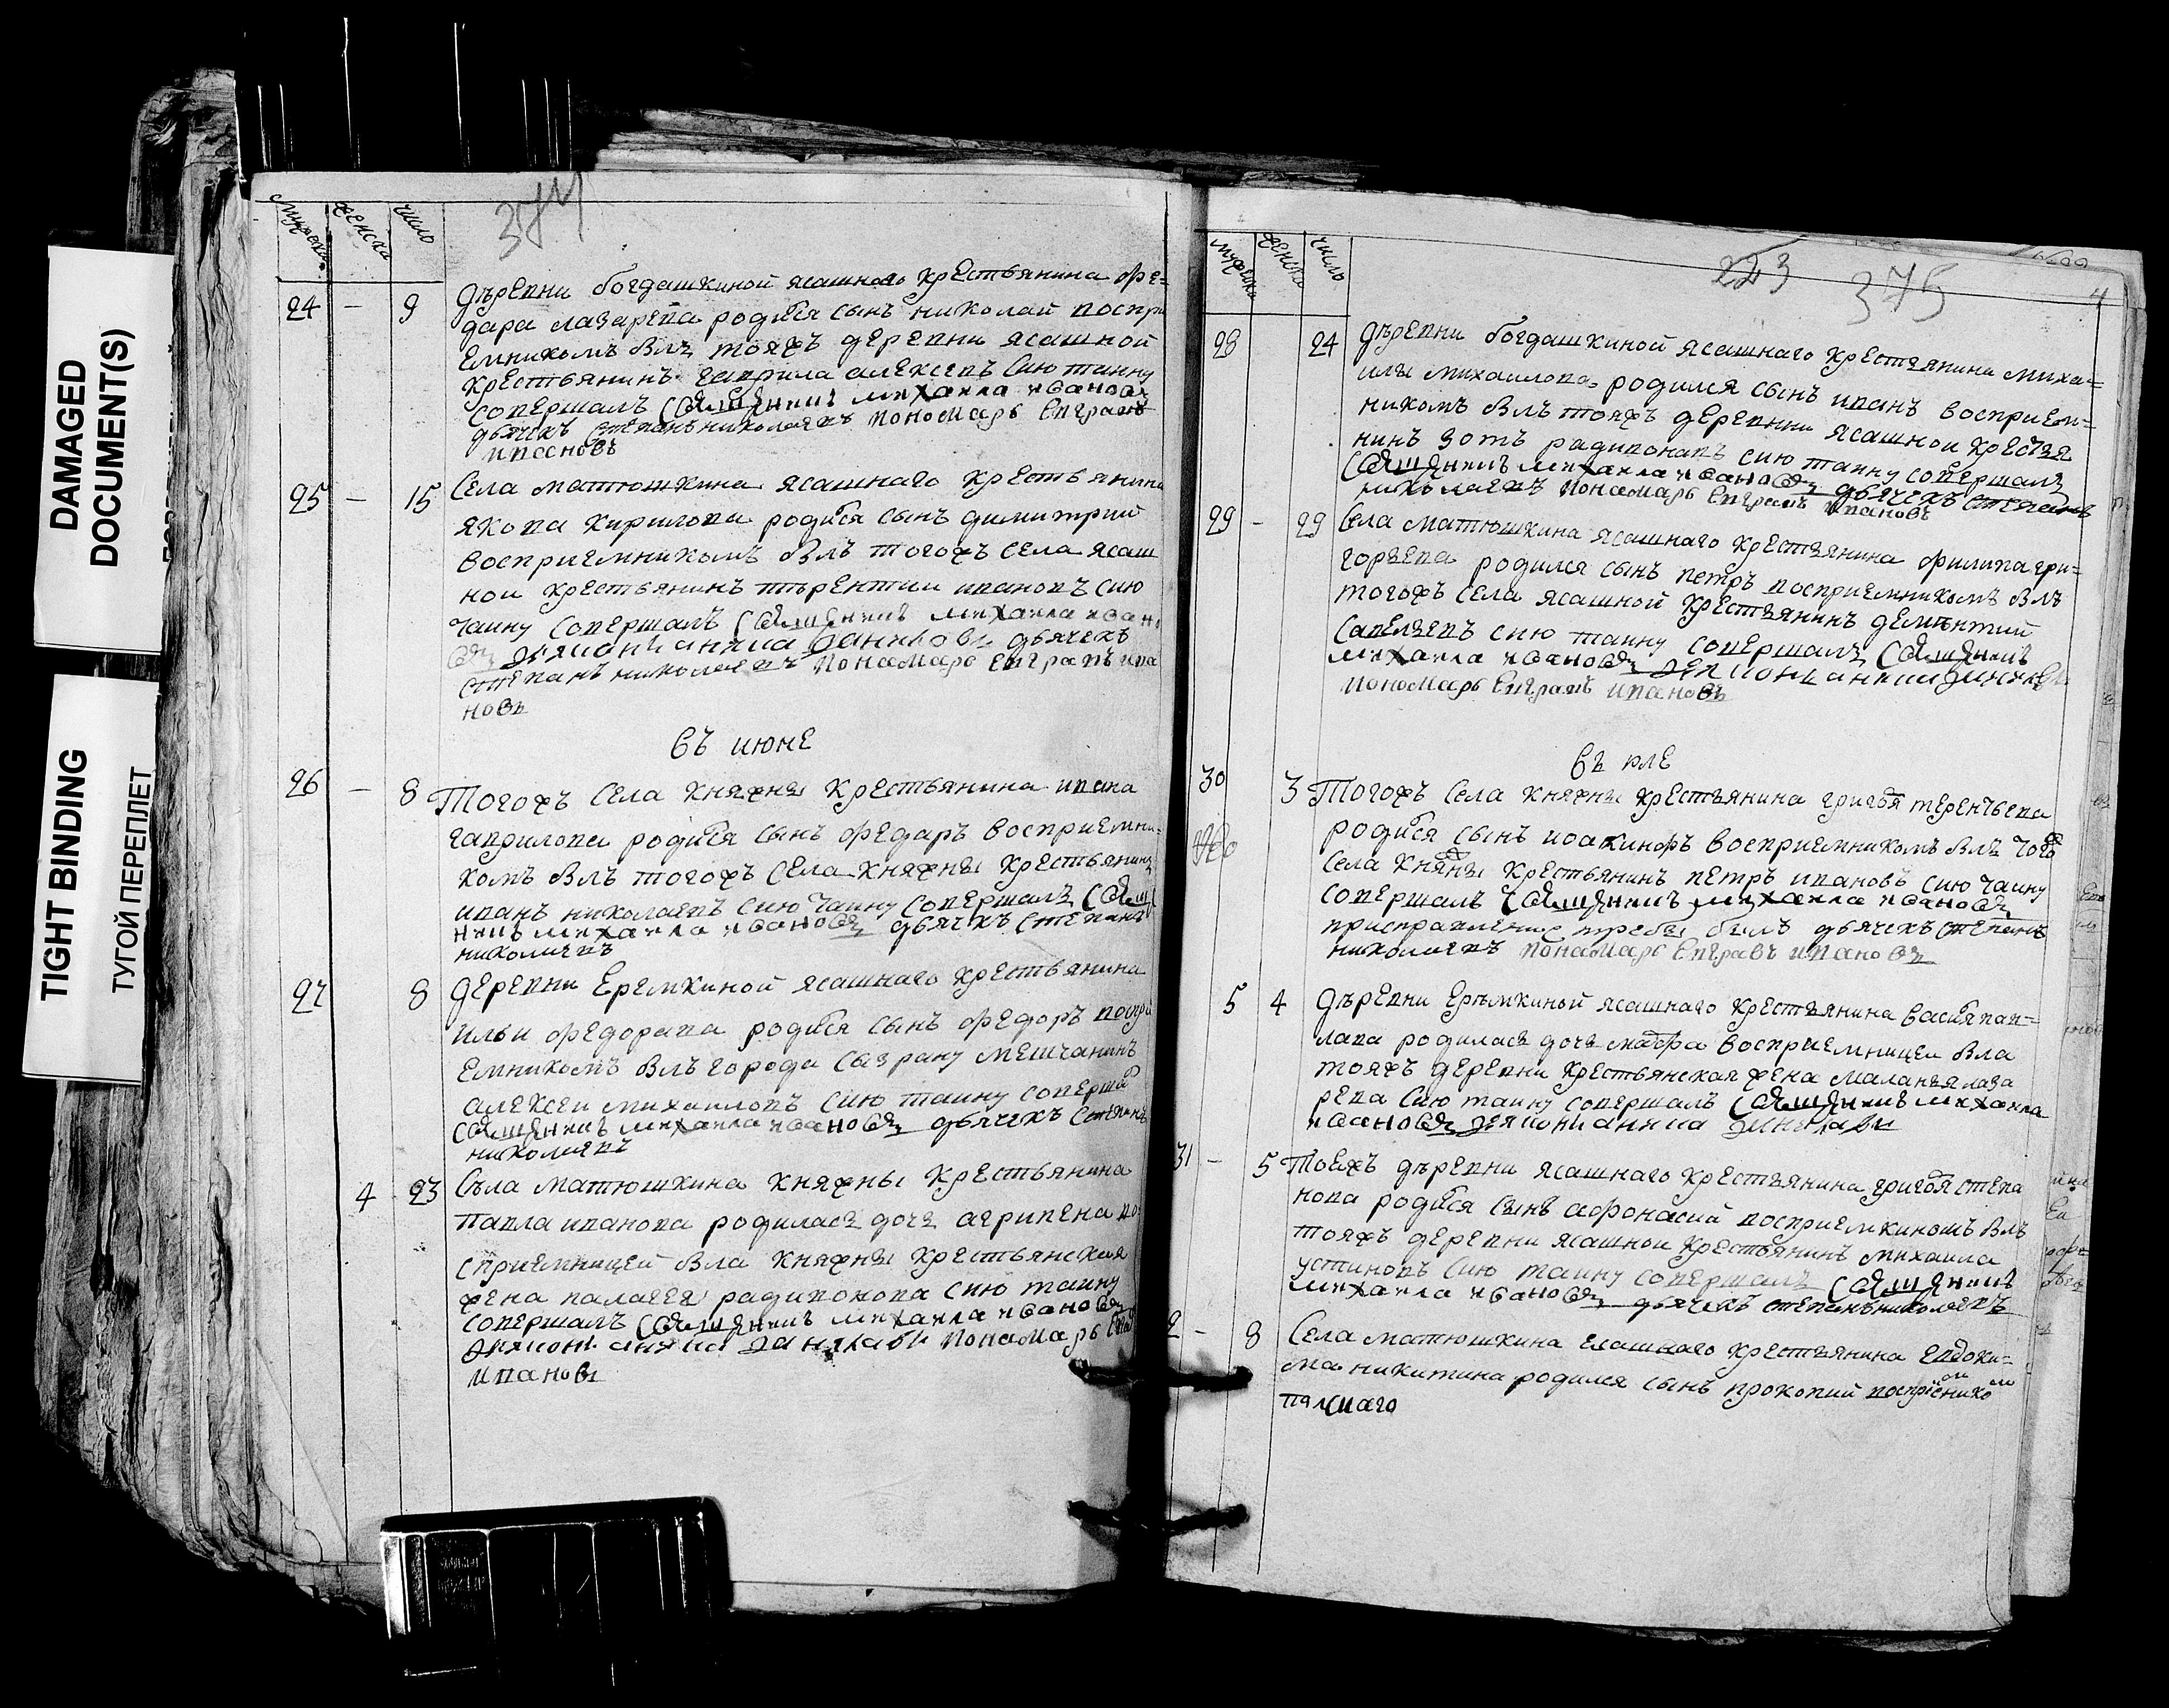 DAMAGED
DOCUMENT(S)
TIGHT BINDING
ТУГОЙ ПЕРЕПЛЕТ
мужска женска число
374
24 — 9 дѣревни богдашкиной ясашнаго крестьянина фе=
дара лазарева родися сынъ николай воспри
емникомъ былъ тояжъ деревни ясашной
крестьянинъ гаврила алексеевъ сию таину
совершалъ священникъ михаила иванов
дьячекъ степанъ николаевъ пономарь Евграѳъ
ивановъ
25 — 15 Села матюшкина ясашнаго крестьянина
якова кирилова родися сынъ димитрий
восприемникомъ былъ тогожъ села ясаш
ной крестьянинъ тѣрентии ивановъ сию
таину совершалъ священникъ михаила иван
дьячекъ
степанъ николаевъ пономарь Евграѳъ ива
новъ
въ июнѣ
26 — 8 Тогожъ села княжны крестьянина ивана
гаврилова родися сынъ федаръ восприемни=
комъ былъ тогожъ села княжны крестьянинъ
иванъ николаевъ сию таину совершалъ свящ
никъ михаила ивановъ дьячекъ степанъ
николаевъ
27 8 деревни Еремкиной ясашнаго крестьянина
ильи федорава родися сынъ федоръ воспри
емникомъ былъ города сызрану мешчанинъ
алексеи михаиловъ сию таину соверша
священникъ михаила ивановъ дьячекъ степанъ
николаевъ
4 23 Сѣла матюшкина княжны крестьянина
павла иванова родилась дочь агрипена во
сприемницей была княжны крестьянская
жена палагея радивонова сию таину
совершалъ священникъ михаила ивановъ
пономарь
ивановъ
мужска женска число
223 375
28 24 дѣревни богдашкиной ясашнаго крестьянина миха=
илы михаилова родился сынъ иванъ восприем=
никомъ былъ тояжъ деревни ясашнои крестья
нинъ зотъ радивонавъ сию таину совершалъ
священникъ михаила ивановъ дьячекъ степанъ
николаевъ пономарь Евграѳъ ивановъ
29 — 29 Села матюшкина ясашнаго крестьянина филипа гри=
горьева родился сынъ петръ восприемникомъ былъ
тогожъ села ясашной крестьянинъ деменьтий
савельевъ сию таину совершалъ священникъ
михаила ивановъ
пономарь Евграѳъ ивановъ
въ июле
30 3 Тогожъ села княжны крестьянина григоя тереньтьева
родися сынъ иоакинфъ восприемникомъ былъ того
села княжны крестьянинъ петръ ивановъ сию таину
совершалъ священникъ михаила ивановъ
присправление требы былъ дьячекъ степанъ
николаевъ понамарь Евгравъ ивановъ
5 4 дѣревни Ерѣмкиной ясашнаго крестьянина василя пав=
лава родилась дочь марфа восприемницеи была
тояжъ деревни крестьянская жена маланья лаза
рева сию таину совершалъ священникъ михаила
ивановъ
31 — 5 Тоежъ дѣревни ясашнаго крестьянина григоя степа
нова родися сынъ афонасий восприемкиномъ былъ
тояжъ деревни ясашнои крестьянинъ михаила
устиновъ сию таину совершалъ священникъ
михаила ивановъ дьячекъ степанъ николаевъ
2 — 8 Села матюшкина есашнаго крестьянина евдоки=
ма никитина родился сынъ прокопий восприемнико